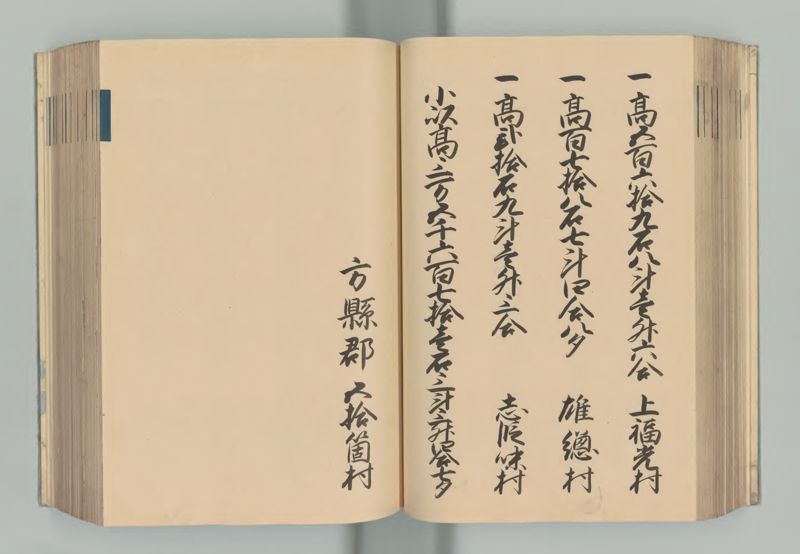 一高五百六拾九石八斗壱升六合 上福光村
一高百七拾八石七斗四合八夕 雄總村
一高弐拾石九斗壱升三合 志段味村
小以高三万五千六百七拾壱石三斗三升四合七夕
方縣郡 五拾箇村